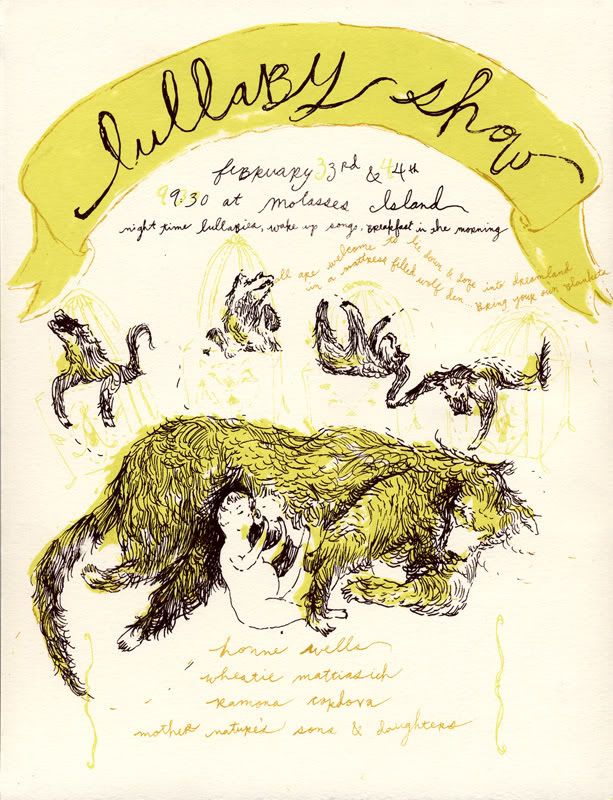 lullaby show
february 3rd & 4th
9:30 at Molasses Island
night time lullabies, wake up songs, breakfast in the morning
all are welcome to lie down & doze into dreamland
in a mattress filled wolf den. Bring your own blankets
honne wells
wheatie mattiasich
ramona cordova
mother nature's sons & daughters